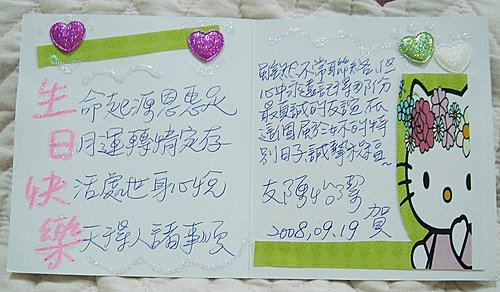 生命起源恩惠足
日月運轉情定存
快活處世身心悅
樂天擇人諸事順
雖然不常聯絡,但
心中永遠記得那份
最真誠的友誼,在
這個屬於妳的特
別日子誠摯祝福~
友 陳怡潔
2008,09.19 賀